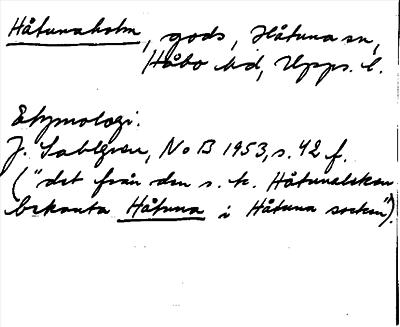 Håtunaholm, gods, Håtuna sn,
Håbo hd, Upps. l.
Etymologi.
J. Sahlgren, NoB 1953, s. 42 f.
("det från den s. k. Håtunaleken
bekanta Håtuna i Håtuna socken").